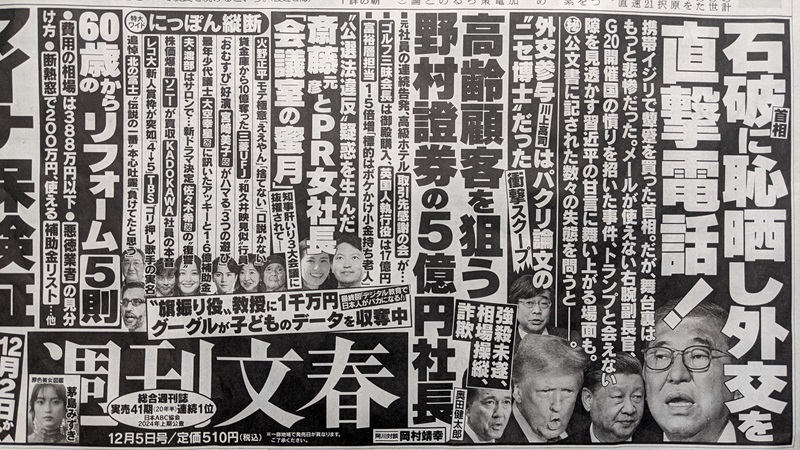 石破首相に恥晒し外交を
直撃電話!
携帯イジリで顰蹙を買った首相。だが、舞台裏は
もっと悲惨だった。メールが使えない右腕副長官、
G20開催国の憤りを招いた事件、トランプと会えない
隙を見透かす習近平の甘言に舞い上がる場面も。
㊙公文書に記された数々の失態を問うと――。
外交参与川上高司はパクリ論文の
“ニセ博士”だった
衝撃スクープ
高齢顧客を狙う
野村證券の5億円社長
強殺未遂、
相場操縦、
詐欺
奥田健太郎
元社員の連続告発、高級ホテル「取引先感謝の会」が…
ゴルフ三昧会長は御殿購入、英国人執行役は17億円
高格順担当「15倍増」標的はボケかけ小金持ち老人
“公選法違反”疑惑を生んだ
斎藤元彦とPR女社長
「会議室の蜜月」
知事肝いり3大会議に
抜擢されて―
特大ワイド
にっぽん縦断
火野正平 モテ極意「ええやん」「捨てない」「口説かない」
貸金庫から10億奪った三菱UFJ「和久井映見似」行員
「おむすび」好演 宮﨑美子がハマる「3つの遊び」
最年少代議士 大空幸星に訊いたアッキーと16億補助金
夫・渡部はサロンで…新ドラマ決定 佐々木希の“復讐”
株価爆騰 ソニーが買収 KADOKAWA社員の本音
レコ大 新人賞枠が突如「4→5」TBSゴリ押し歌手の実名
追悼 北の富士 伝説の一番“本心吐露”「負けてたと思う」
60歳からの
リフォーム5則
●費用の相場は388万円以下●悪徳業者の見分
け方●断熱窓で200万円、使える補助金リスト…他
マイナ保険証
“旗振り役”教授に1千万円
グーグルが子どものデータを収奪中
最終回「デジタル教育で
日本人がバカになる!!」
週刊文春
原色美女図鑑
茅島みずき
総合週刊誌
実売41期(20年半)連続1位
日本ABC協会
2024年上期公査
12月5日号/定価510円(税込)
※一部地域で発売日が異なります。
ご了承ください。
阿川対談 岡村靖幸
12月2日か